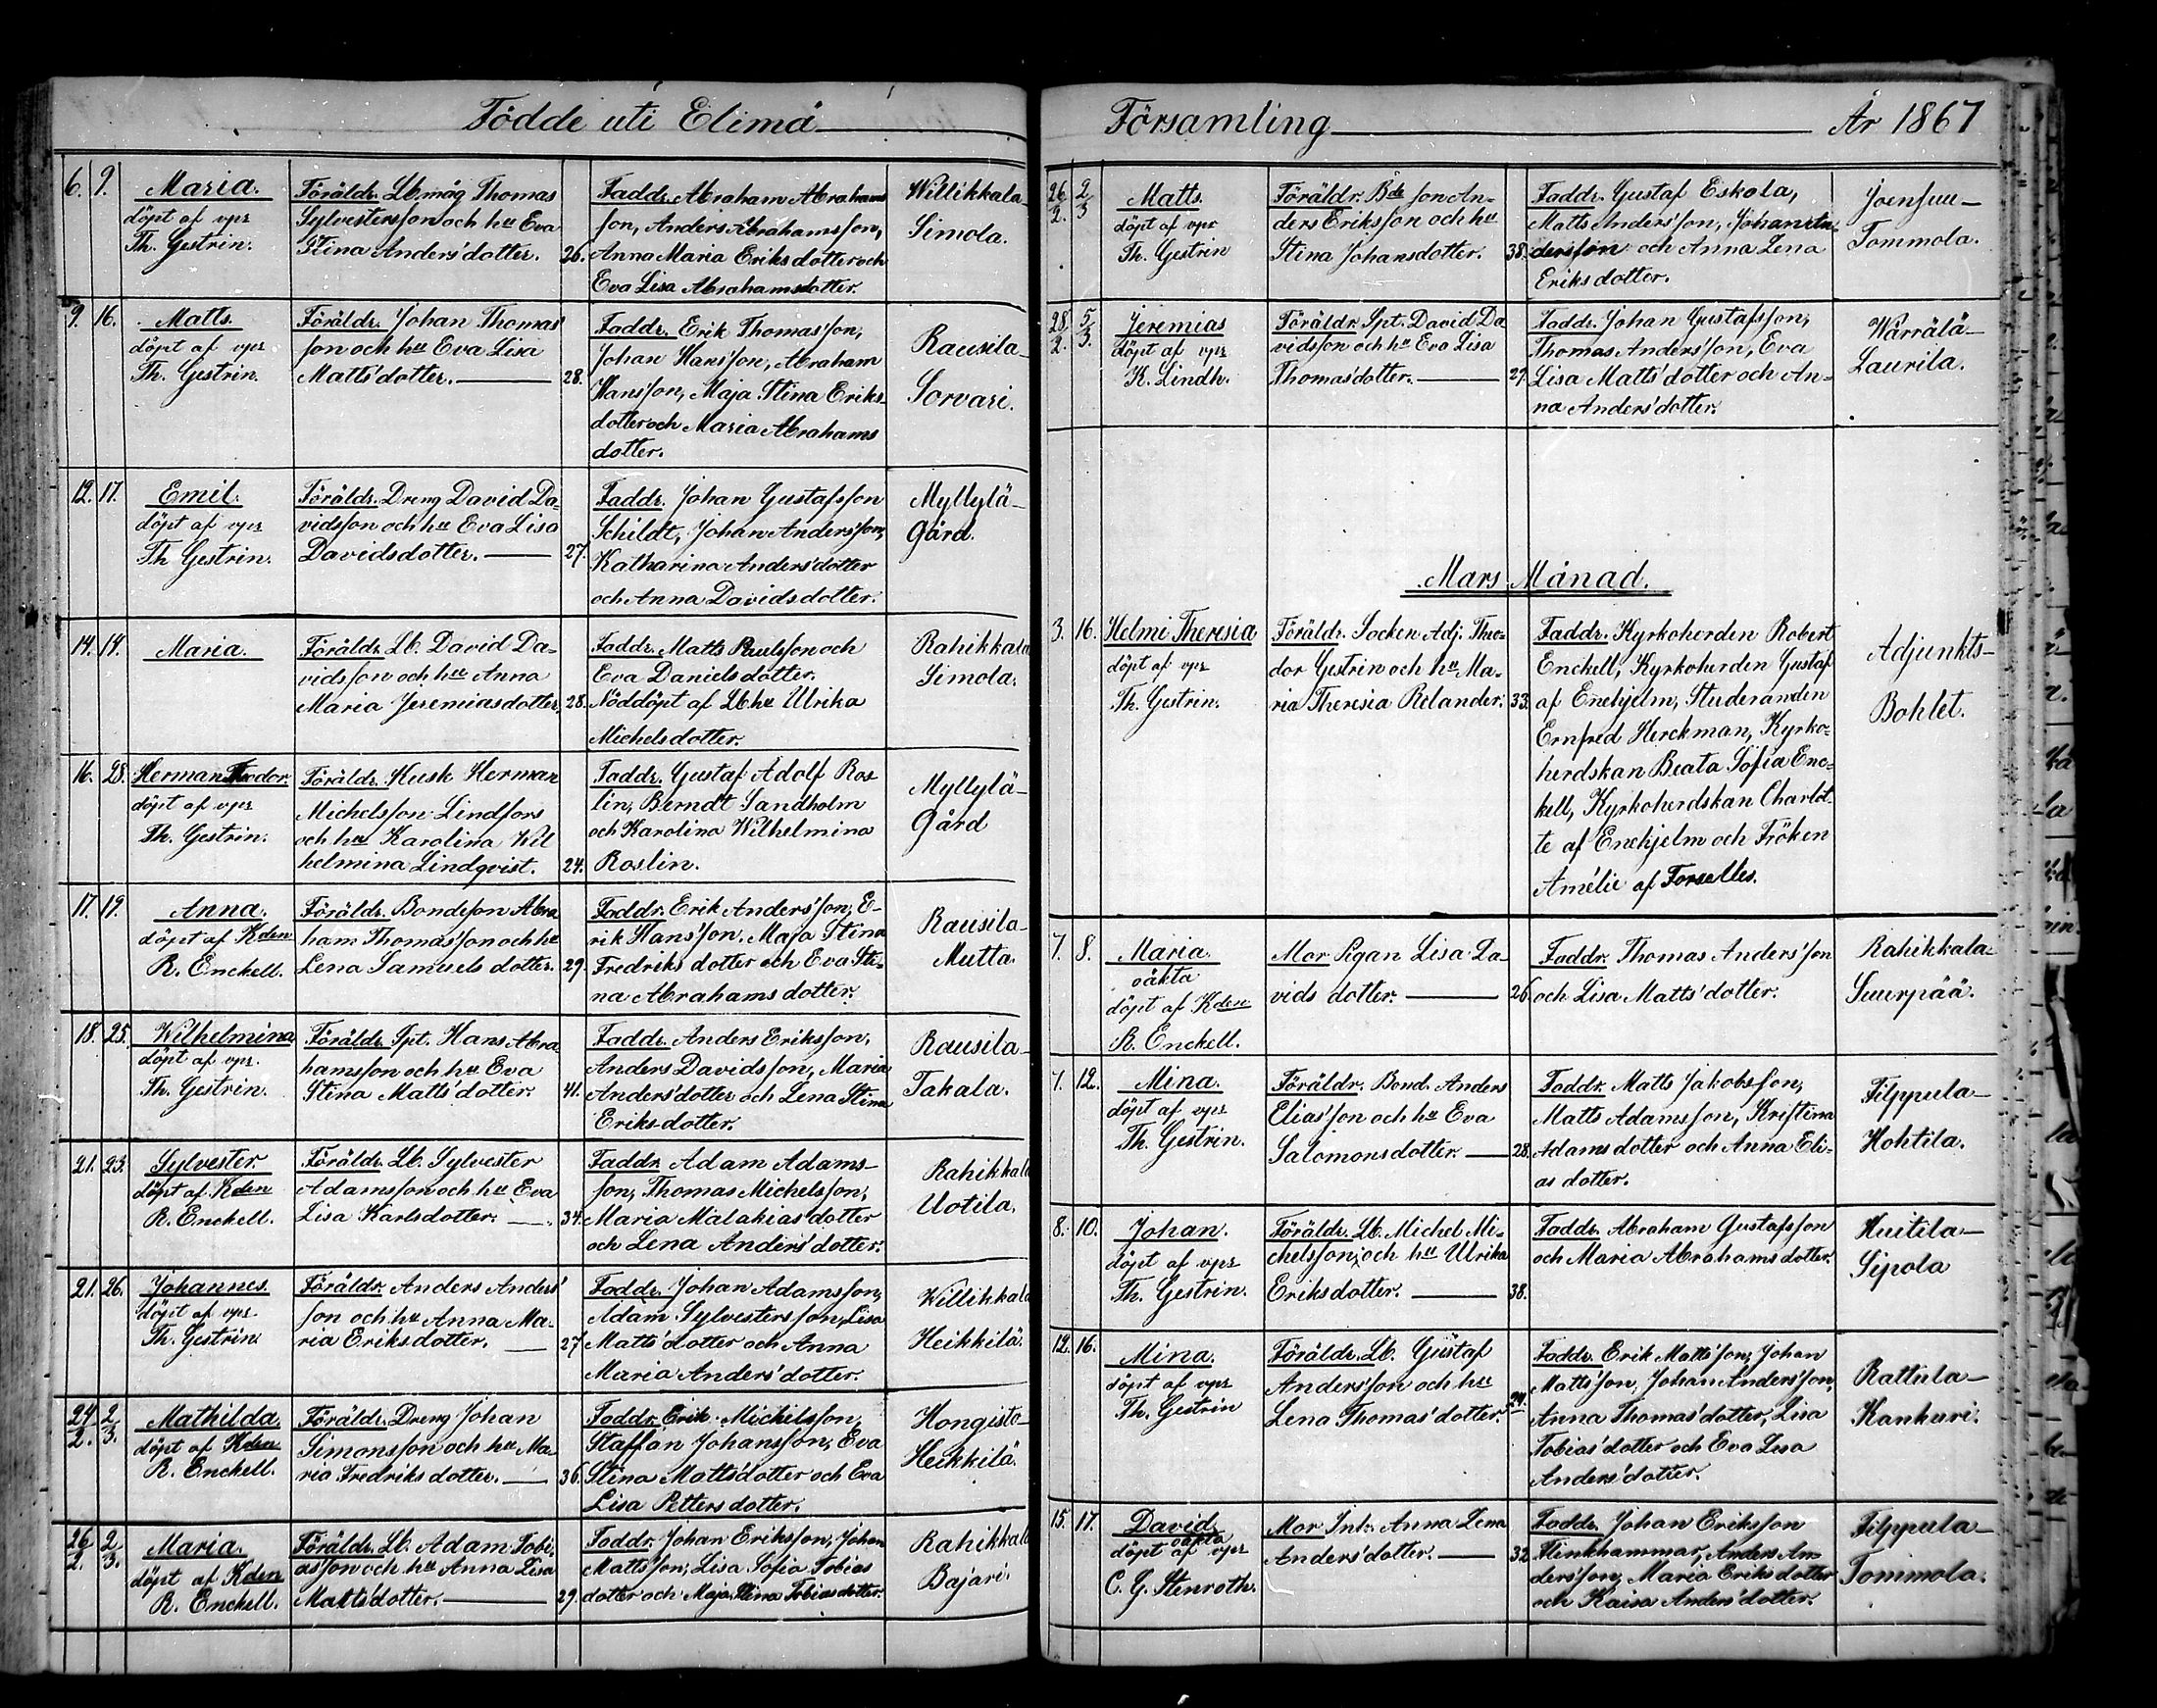 Födde uti Elimä
6. 9. Maria.
döpt af vpr
Th. Gestrin.
Föräldr. Lb.måg Thomas
Sylvestersson och hu Eva
Stina Anders'dotter. 26.
Faddr. Abraham Abrahams
son, Anders Abrahamsson,
Anna Maria Eriksdotter och
Eva Lisa Abrahamsdotter.
Willikkala-
Simola.
9. 16. Matts.
döpt af vpr
Th. Gestrin.
Föräldr. Johan Thomas'
son och hu Eva Lisa
Matts'dotter. 28.
Faddr. Erik Thomas'son,
Johan Hans'son, Abraham
Hansson, Maja Stina Eriks-
dotter och Maria Abrahams
dotter.
Rausila-
Sorvari.
12. 17. Emil.
döpt af vpr
Th Gestrin.
Föräldr. Dreng David Da-
vidsson och hu Eva Lisa
Davidsdotter. 27.
Faddr. Johan Gustafsson
Schildt, Johan Anders'son,
Katharina Anders'dotter
och Anna Davidsdotter.
Myllylä-
Gård.
14. 14. Maria.
Föräldr. Lb. David Da-
vidsson och hu Anna
Maria Jeremiasdotter. 28.
Faddr. Matts Paulsson och
Eva Danielsdotter.
Nöddöpt af Lb hu Ulrika
Michelsdotter.
Rahikkala
Simola.
16. 28. Herman Teodor.
döpt af vpr
Th. Gestrin.
Föräldr. Kusk Herman
Michelsson Lindfors
och hu Karolina Wil
helmina Lindqvist. 24.
Faddr. Gustaf Adolf Ros
lin, Berndt Sandholm
och Karolina Wilhelmina
Roslin.
Myllylä-
Gård
17. 19. Anna.
döpt af Kden
R. Enckell.
Föräldr. Bondeson Abra
ham Thomas'son och hu
Lena Samuels dotter. 29.
Faddr. Erik Anders'son, E-
rik Hans'son, Maja Stina
Fredriks dotter och Eva Sti-
na Abrahams dotter.
Rausila-
Mutta.
18. 25. Wilhelmina
döpt af vpr.
Th. Gestrin.
Föräldr. Spt. Hans Abra
hamsson och hu Eva
Stina Matts'dotter. 41.
Faddr. Anders Eriksson,
Anders Davidsson, Maria
Anders'dotter och Lena Stina
Eriksdotter.
Rausila-
Takala.
21. 23. Sylvester.
döpt af Kden
R. Enckell.
Föräldr. Lb. Sylvester
Adamsson och hu Eva
Lisa Karlsdotter. 34.
Faddr. Adam Adams-
son, Thomas Michelsson,
Maria Malakias'dotter
och Lena Anders'dotter.
Rahikkala
Uotila.
21. 26. Johannes.
döpt af vpr
Th. Gestrin.
Föräldr. Anders Anders'
son och hu Anna Ma-
ria Eriksdotter. 27
Faddr. Johan Adamsson,
Adam Sylvestersson, Lisa
Matts'dotter och Anna
Maria Anders'dotter.
Willikkala
Heikkilä.
24/2. 2/3. Mathilda.
döpt af Kden
R. Enckell.
Föräldr. Dreng Johan
Simonsson och hu Ma-
ria Fredriks dotter. 36.
Faddr. Erik Michelsson,
Staffan Johansson, Eva
Stina Matts'dotter och Eva
Lisa Petters dotter.
Hongisto-
Heikkilä.
26/2. 2/3. Maria.
döpt af Kden
R. Enckell.
Föräldr. Lb. Adam Tobi-
as'son och hu Anna Lisa
Matts'dotter. 29.
Faddr. Johan Eriksson, Johan
Mattsson, Lisa Sofia Tobias
dotter och Maja Stina Tobias dotter.
Rahikkala
Bajari.
Församling År 1867
26/2. 2/3 Matts.
döpt af vpr
Th. Gestrin
Föräldr. Bde son An-
ders Eriksson och hu
Stina Johansdotter. 38.
Faddr. Gustaf Eskola,
Matts Anders'son, Johan An
dersson och Anna Lena
Eriksdotter.
Joensuu-
Tommola.
28/2. 5/3. Jeremias
döpt af vpr
K. Lindh.
Föräldr. Spt. David Da
vidsson och hu Eva Lisa
Thomas'dotter. 29.
Faddr. Johan Gustafsson,
Thomas Anders'son, Eva
Lisa Matts'dotter och An-
na Anders'dotter.
Wärrälä-
Laurila.
Mars Månad.
3. 16. Helmi Theresia
döpt af vpr
Th. Gestrin.
Föräldr. Socken Adj. Theo-
dor Gestrin och hu Ma-
ria Theresia Relander. 33.
Faddr. Kyrkoherden Robert
Enckell, Kyrkoherden Gustaf
af Enehjelm, Studeranden
Ernfred Herckman, Kyrko-
herdskan Beata Sofia Enc-
kell, Kyrkoherdskan Charlot-
te af Enehjelm och Fröken
Amélie af Forselles.
Adjunkts-
Bohlet.
7. 8. Maria.
oäkta
döpt af Kden
R. Enckell.
Mor Pigan Lisa Da-
vids dotter. 26.
Faddr. Thomas Anders'son
och Lisa Matts'dotter.
Rahikkala-
Suurpää.
7. 12. Mina.
döpt af vpr
Th. Gestrin.
Föräldr. Bond. Anders
Elias'son och hu Eva
Salomonsdotter. 28.
Faddr. Matts Jakobsson,
Matts Adamsson, Kristina
Adamsdotter och Anna Eli-
as dotter.
Filppula-
Kohtila.
8. 10. Johan.
döpt af vpr
Th. Gestrin.
Föräldr. Lb. Michel Mi-
chelsson, och hu Ulrika
Eriksdotter. 38.
Faddr. Abraham Gustafsson
och Maria Abrahams dotter.
Huitila-
Sipola
12. 16. Mina.
döpt af vpr
Th. Gestrin
Föräldr. Lb. Gustaf
Anders'son och hu
Lena Thomas'dotter. 24.
Faddr. Erik Matts'son, Johan
Matts'son, Johan Anders'son,
Anna Thomas'dotter, Lisa
Tobias'dotter och Eva Lisa
Anders'dotter.
Rattula-
Kankuri.
15. 17. David.
oäkta
döpt af vpr
C. G. Stenroth.
Mor Inh. Anna Lena
Anders'dotter. 32
Faddr. Johan Eriksson
Klinkhammar, Anders An-
ders'son, Maria Eriks dotter
och Kaisa Anders'dotter.
Filppula-
Tommola.